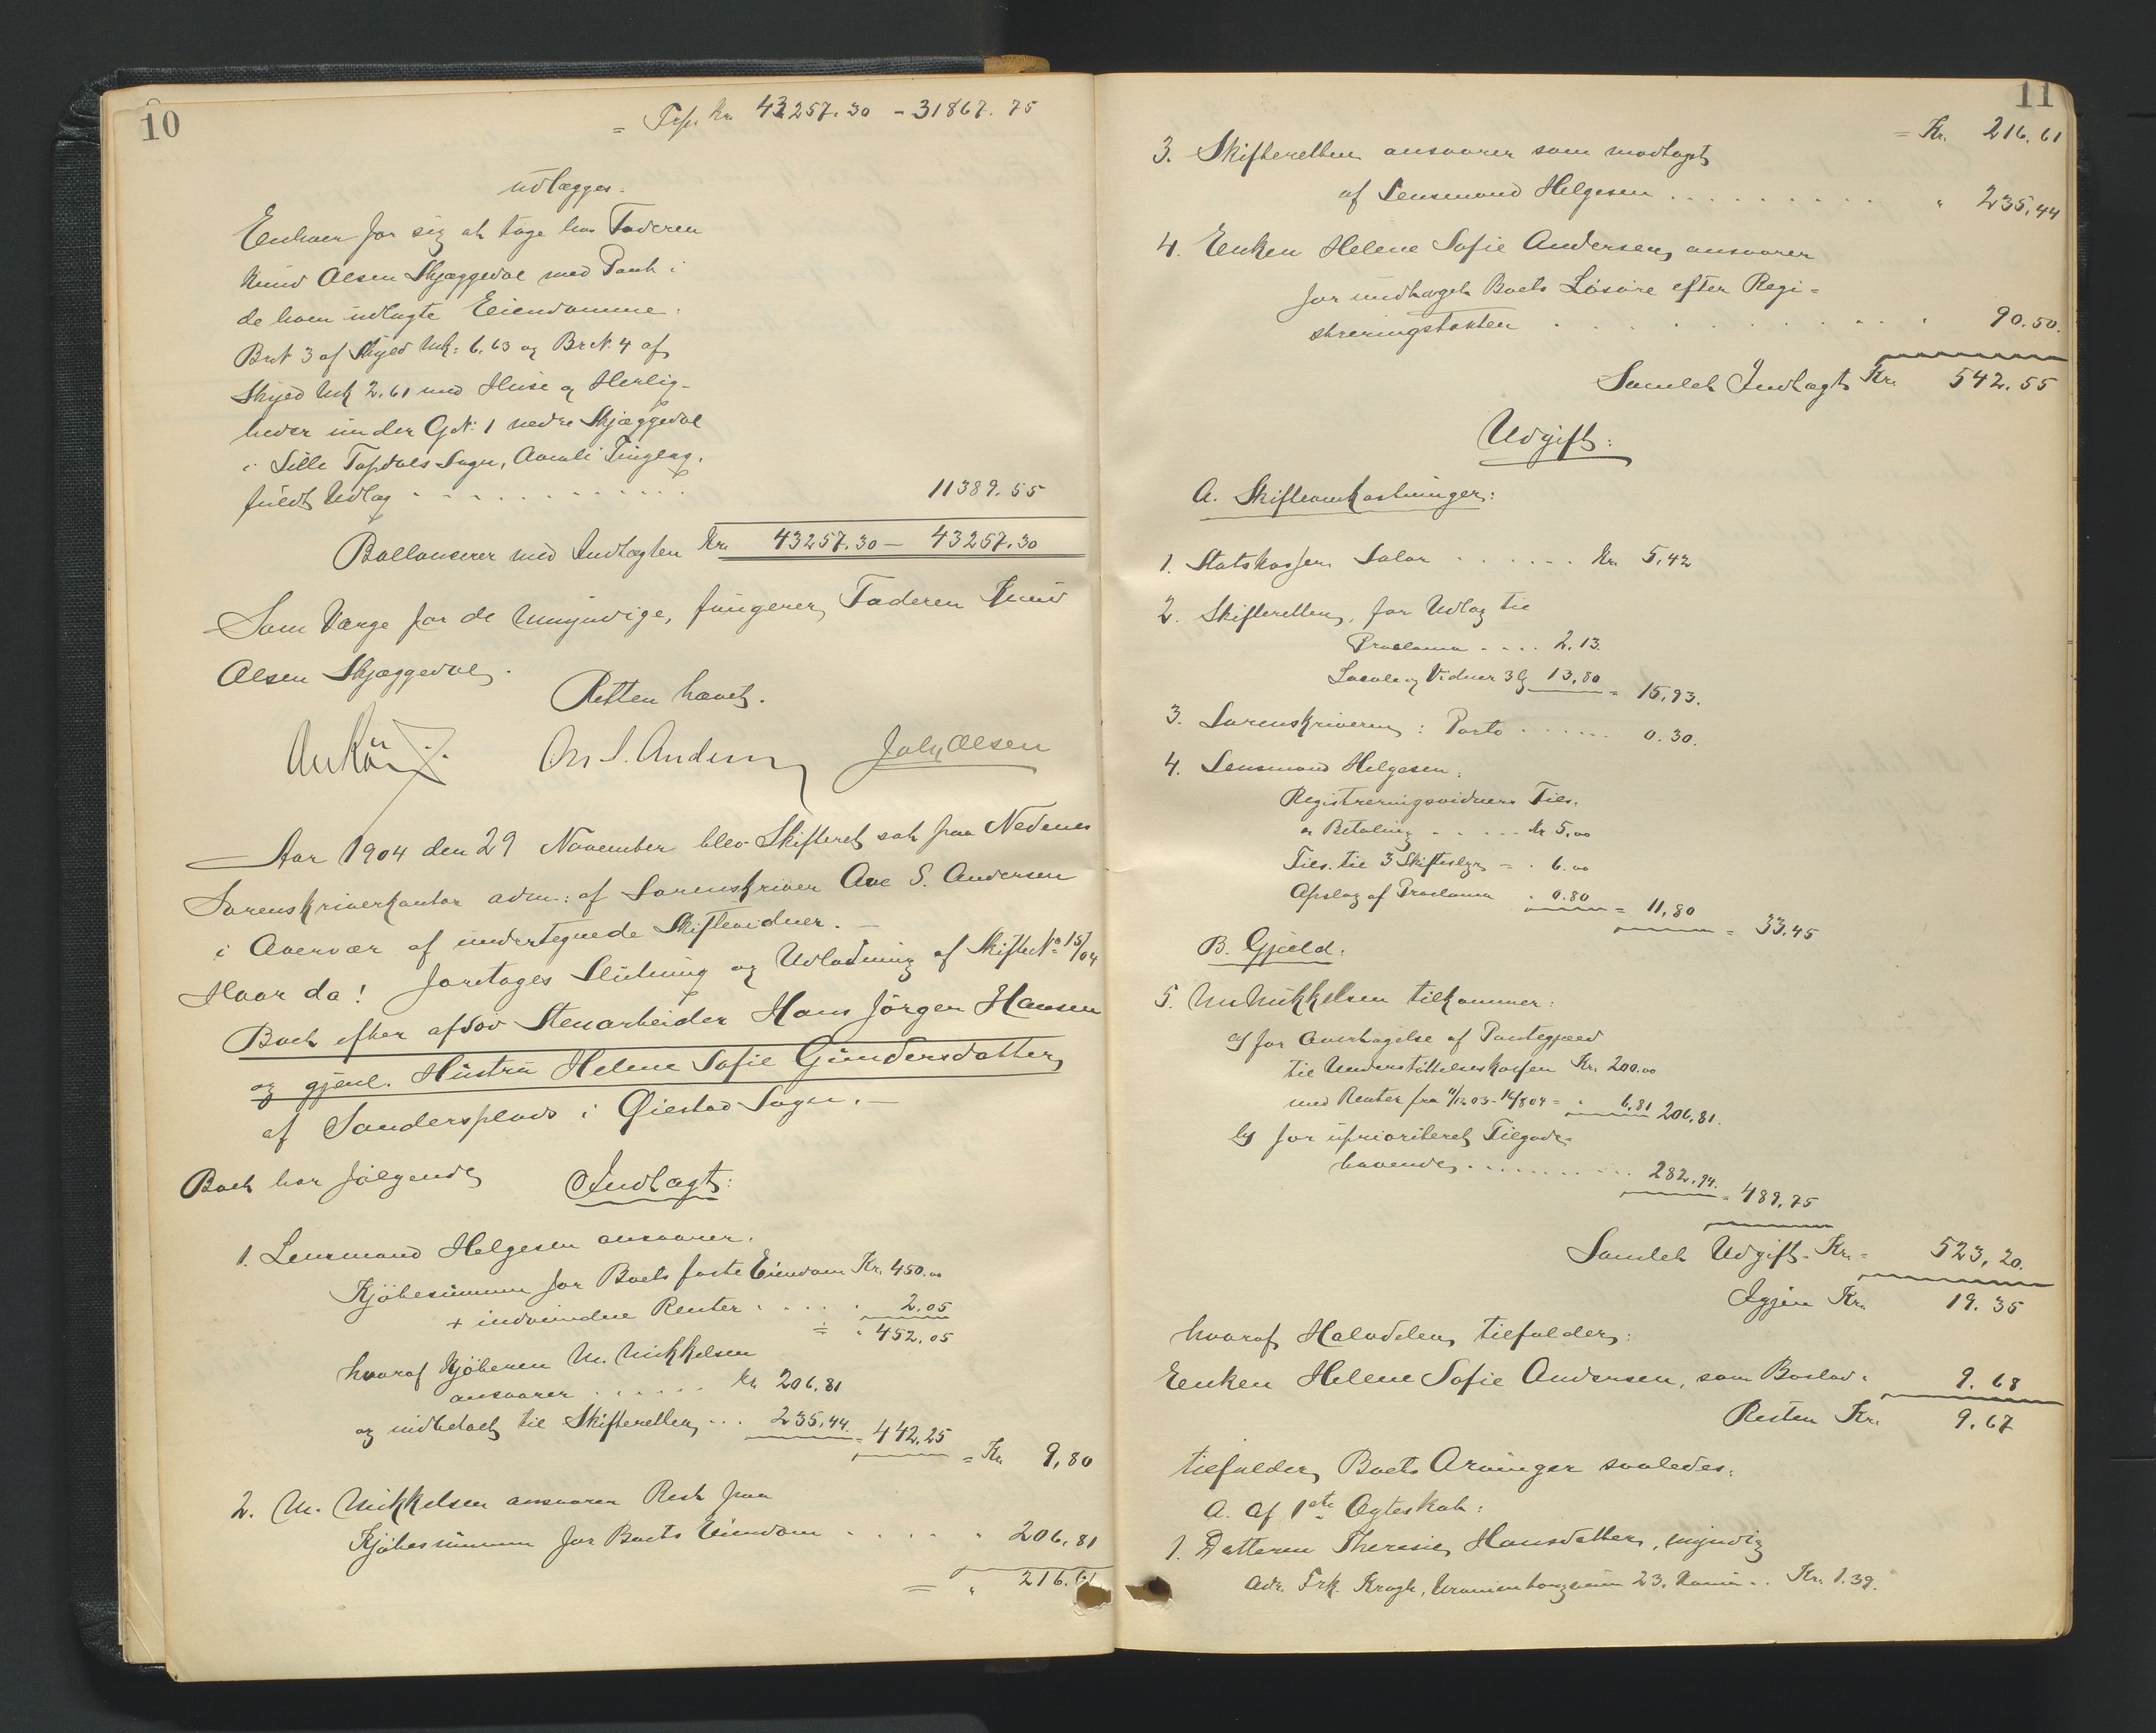 10
= Trsp. Kr. 43257.30 - 31867.75
udlægges.
Enhver for sig at tage hos Faderen
Knud Olsen Skjæggedal med Pant i
de ham udlagte Eiendomme.
BrN 3 af Skyld Mk: 6.63 og BrN. 4 af
Skyld Mk 2.61 med Huse og Herlig-
heder under GN: 1 nedre Skjæggedal
i Lille Topdals Sogn, Aamli Tinglag.
fuldt Udlæg - - - - - 11389.55
Ballancerer med Indtægten Kr. 43257.30 — 43257.30
Som Værge for de Umyndige, fungerer Faderen Knud
Olsen Skjæggedal.
Retten hævet.
On S. Andersen Joh Olsen
Aar 1904 den 29 November blev Skifteret sat paa Nedenes
Sorenskriverkontor adm: af Sorenskriver Ove S. Andersen
i Overvær af undertegnede Skiftevidner. —
Hvor da! foretoges Slutning og Udlodning af Skifte No 15/04
Boet efter afdød Stenarbeider Hans Jörgen Hansen
og gjenl. Hustru Helene Sofie Gundersdatter
af Sandersplads i Øiestad Sogn. —
Boet har følgende Indtægt:
1. Lensmand Helgesen ansvarer.
Kjöbesummen for Boets faste Eiendom Kr. 450.00
+ indvundne Renter . . . . . 2.05
= " 452.05
hvoraf Kjöberen M. Mikkelsen
ansvarer . . . . . . Kr 206.81
og indbetalt til Skifteretten . . . 235.44 = 442.25 = Kr. 9,80
2. M. Mikkelsen ansvarer Rest paa
Kjöbesummen for Boets Eiendom . . . . " 206,81
= " 216.61
11
= Kr. 216.61
3. Skifteretten ansvarer som modtaget
af Lensmand Helgesen . . . . . . . . . " 235,44
4. Enken Helene Sofie Andersen ansvarer
for undtaget Boets Lösöre efter Regi=
streringstakten . . . . . . . . . . 90.50.
Samlet Indtægt Kr. 542.55
Udgift:
A. Skifteomkostninger:
1. Statskassen Salær . . . . . . Kr. 5,42
2. Skifteretten, for Udlæg til
Proclama . . . . 2.13.
Locale og Vidner 3 g 13,80 = 15,93.
3. Sorenskriveren : Porto . . . . . . 0.30.
4. Lensmand Helgesen:
Registreringsvidners Tils.
og Betaling . . . . . Kr 5,00
Tils. til 3 Skifteslgr = . 6.00
Opslag af Proclama . 0.80 = 11,80 = 33.45
B. Gjæld.
5. M. Mikkelsen tilkommer:
a) for Overtagelse af Pantegjæld
til Understøttelseskassen Kr. 200.00
med Renter fra 11/12.03-14/8 04 = . 6,81 206,81.
b) for uprioriteret Tilgode-
havende . . . . . . . . . . 282.94. = 489,75
Samlet Udgift Kr. = 523,20.
Igjen Kr. 19.35
hvoraf Halvdelen tilfalder:
Enken Helene Sofie Andersen, som Boslod: 9.68
Resten Kr. 9.67
tilfalder Boets Arvinger saaledes:
A. Af 1ste Ægteskab:
1. Datteren Theresie Hansdatter, myndig
Adr. Frk. Krogh, Uranienborgveien 23. . . Kr. 1.39.